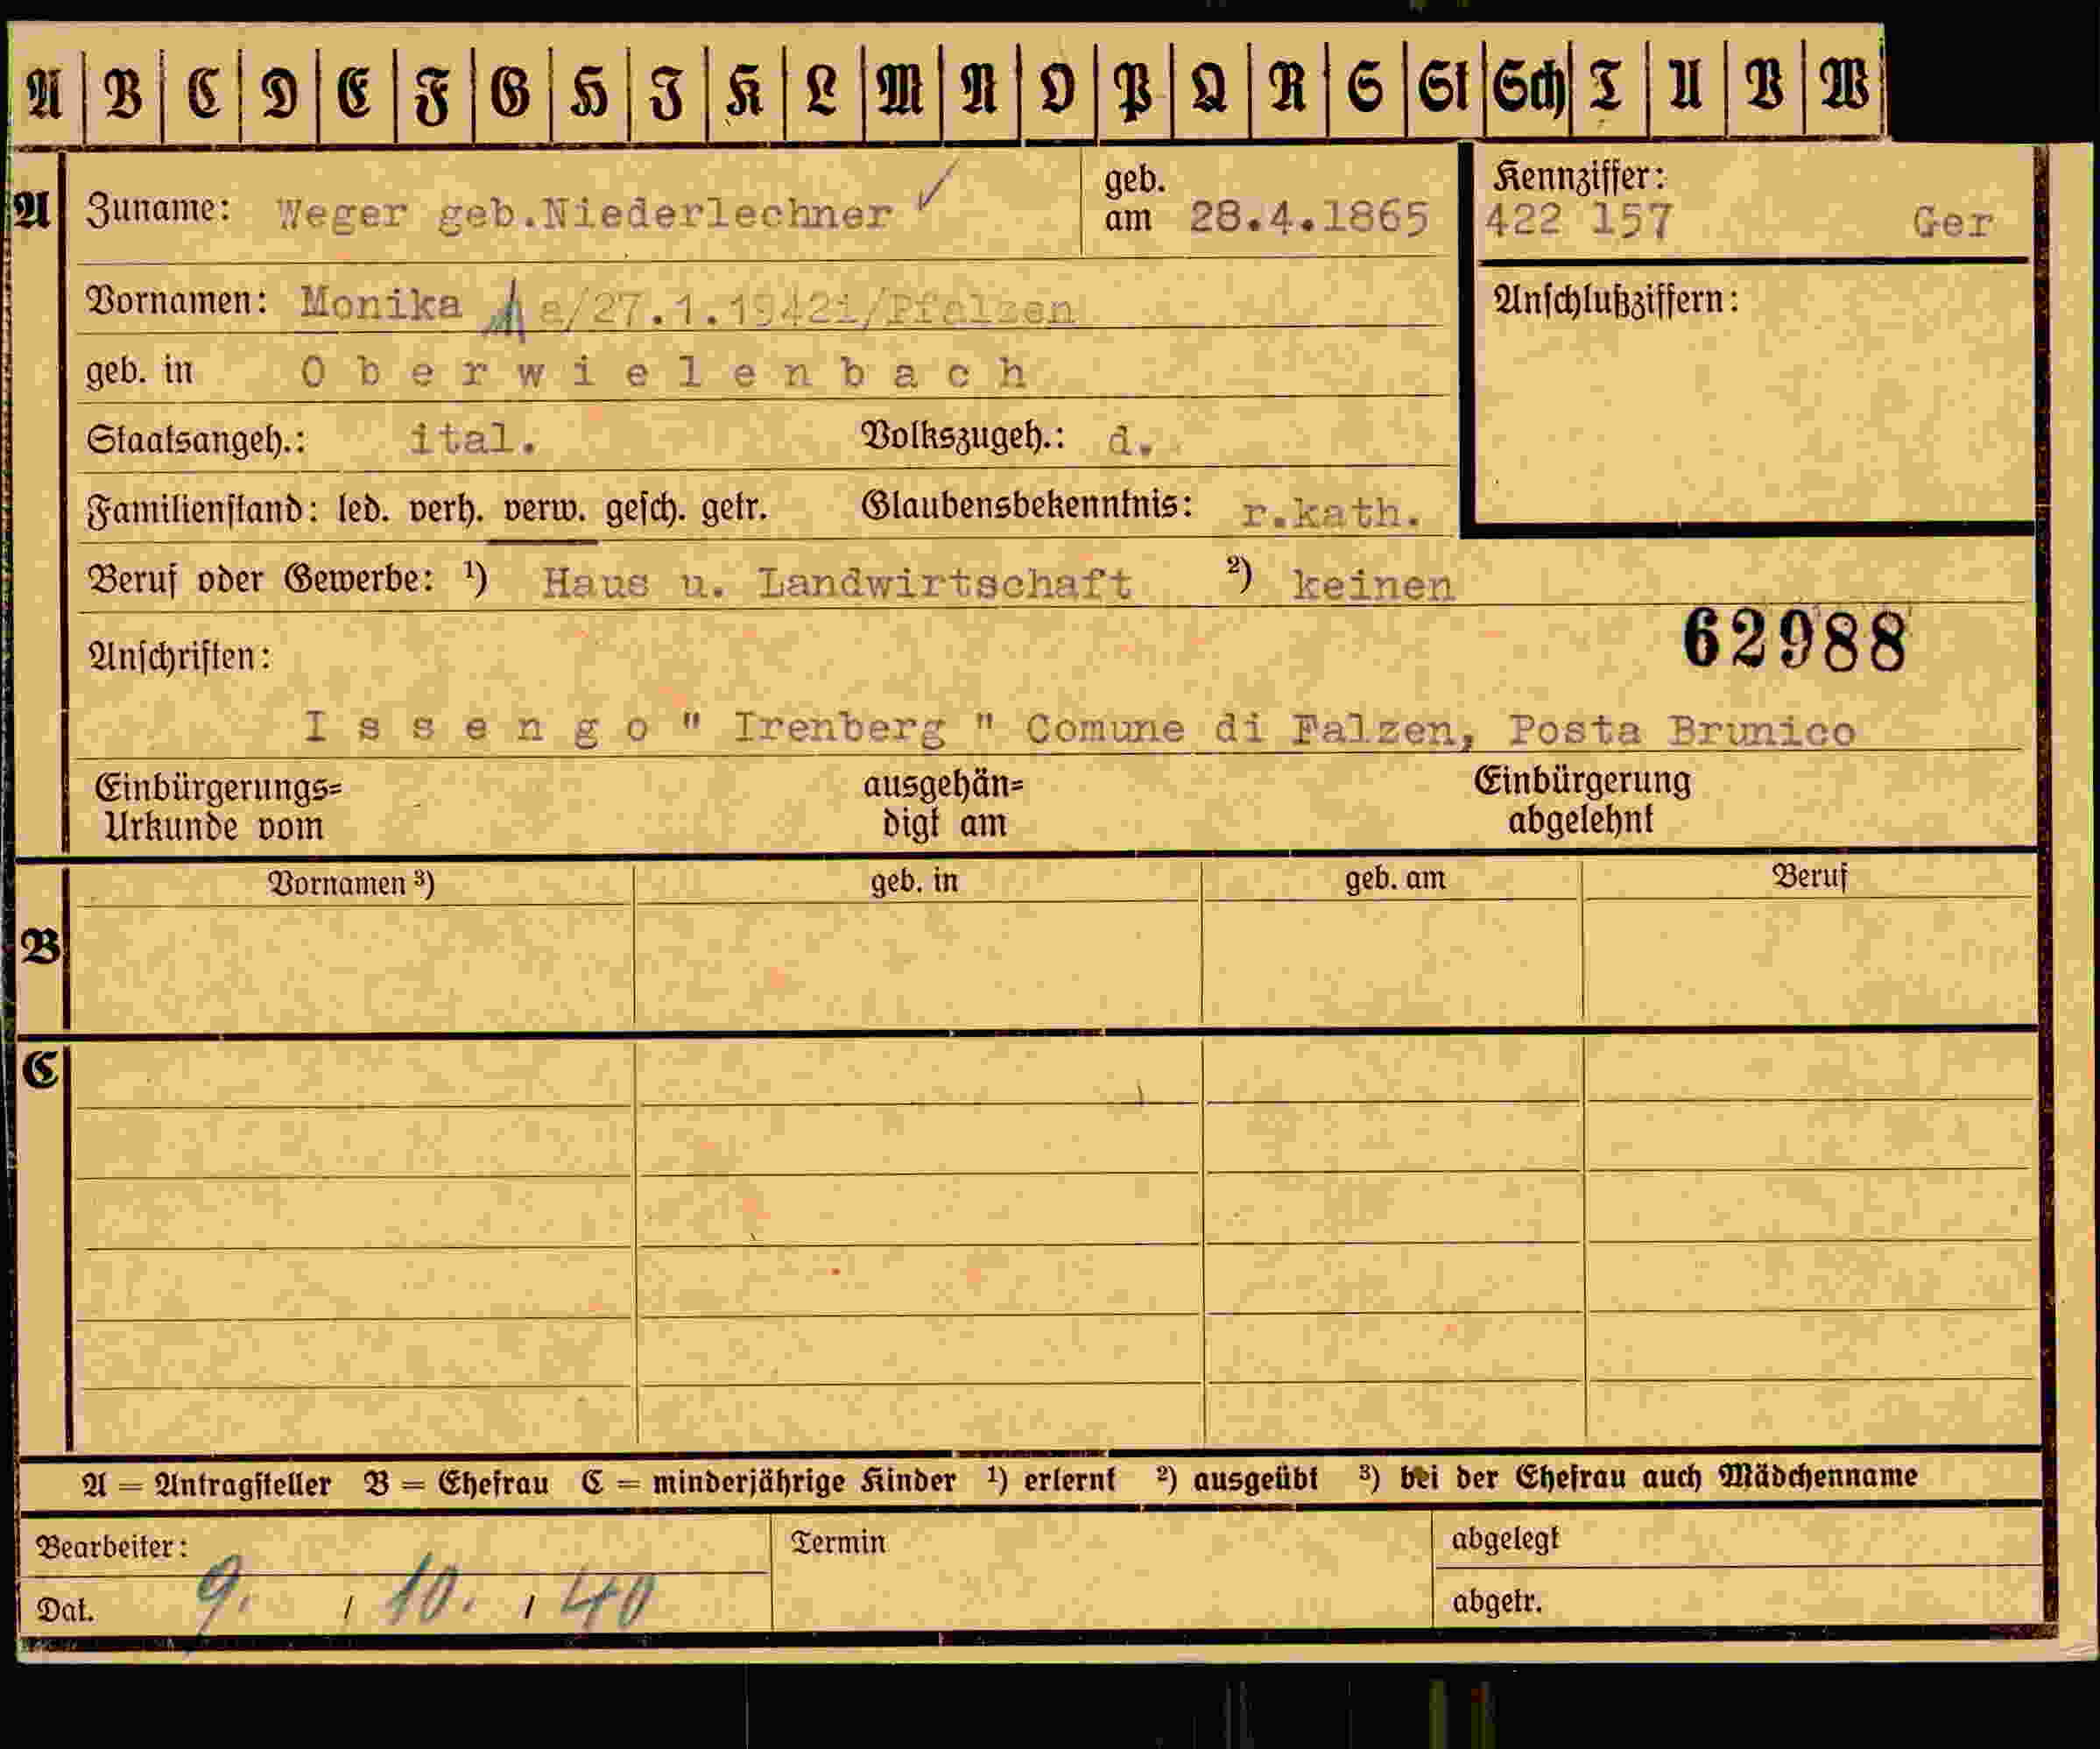 A B C D E F G H J K L M N O P Q R S St Sch T U V W
A Zuname: Weger geb.Niederlechner ✓ geb. am 28.4.1865
Kennziffer:
422 157 Ger
Vornamen: Monika a/27.1.1942i/Pfalzen
Anschlußziffern:
geb. in Oberwielenbach
Staatsangeh.: ital. Volkszugeh.: d.
Familienstand: led. verh. verw. gesch. getr. Glaubensbekenntnis: r.kath.
Beruf oder Gewerbe: ¹) Haus u. Landwirtschaft ²) keinen
62988
Anschriften:
Issengo " Irenberg " Comune di Falzen, Posta Brunico
Einbürgerungs= ausgehän= Einbürgerung
Urkunde vom digt am abgelehnt
Vornamen ³) geb. in geb. am Beruf
B
C
A = Antragsteller B = Ehefrau C = minderjährige Kinder ¹) erlernt ²) ausgeübt ³) bei der Ehefrau auch Mädchenname
Bearbeiter: Termin abgelegt
Dat. 9. / 10. / 40 abgetr.